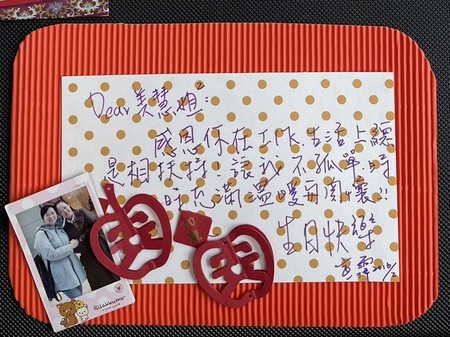 Dear 美慧姐:
感恩你在工作、生活上總
是相扶持!讓我不孤單時
時充滿溫暖開懷!!
生日快樂
Rilakkuma